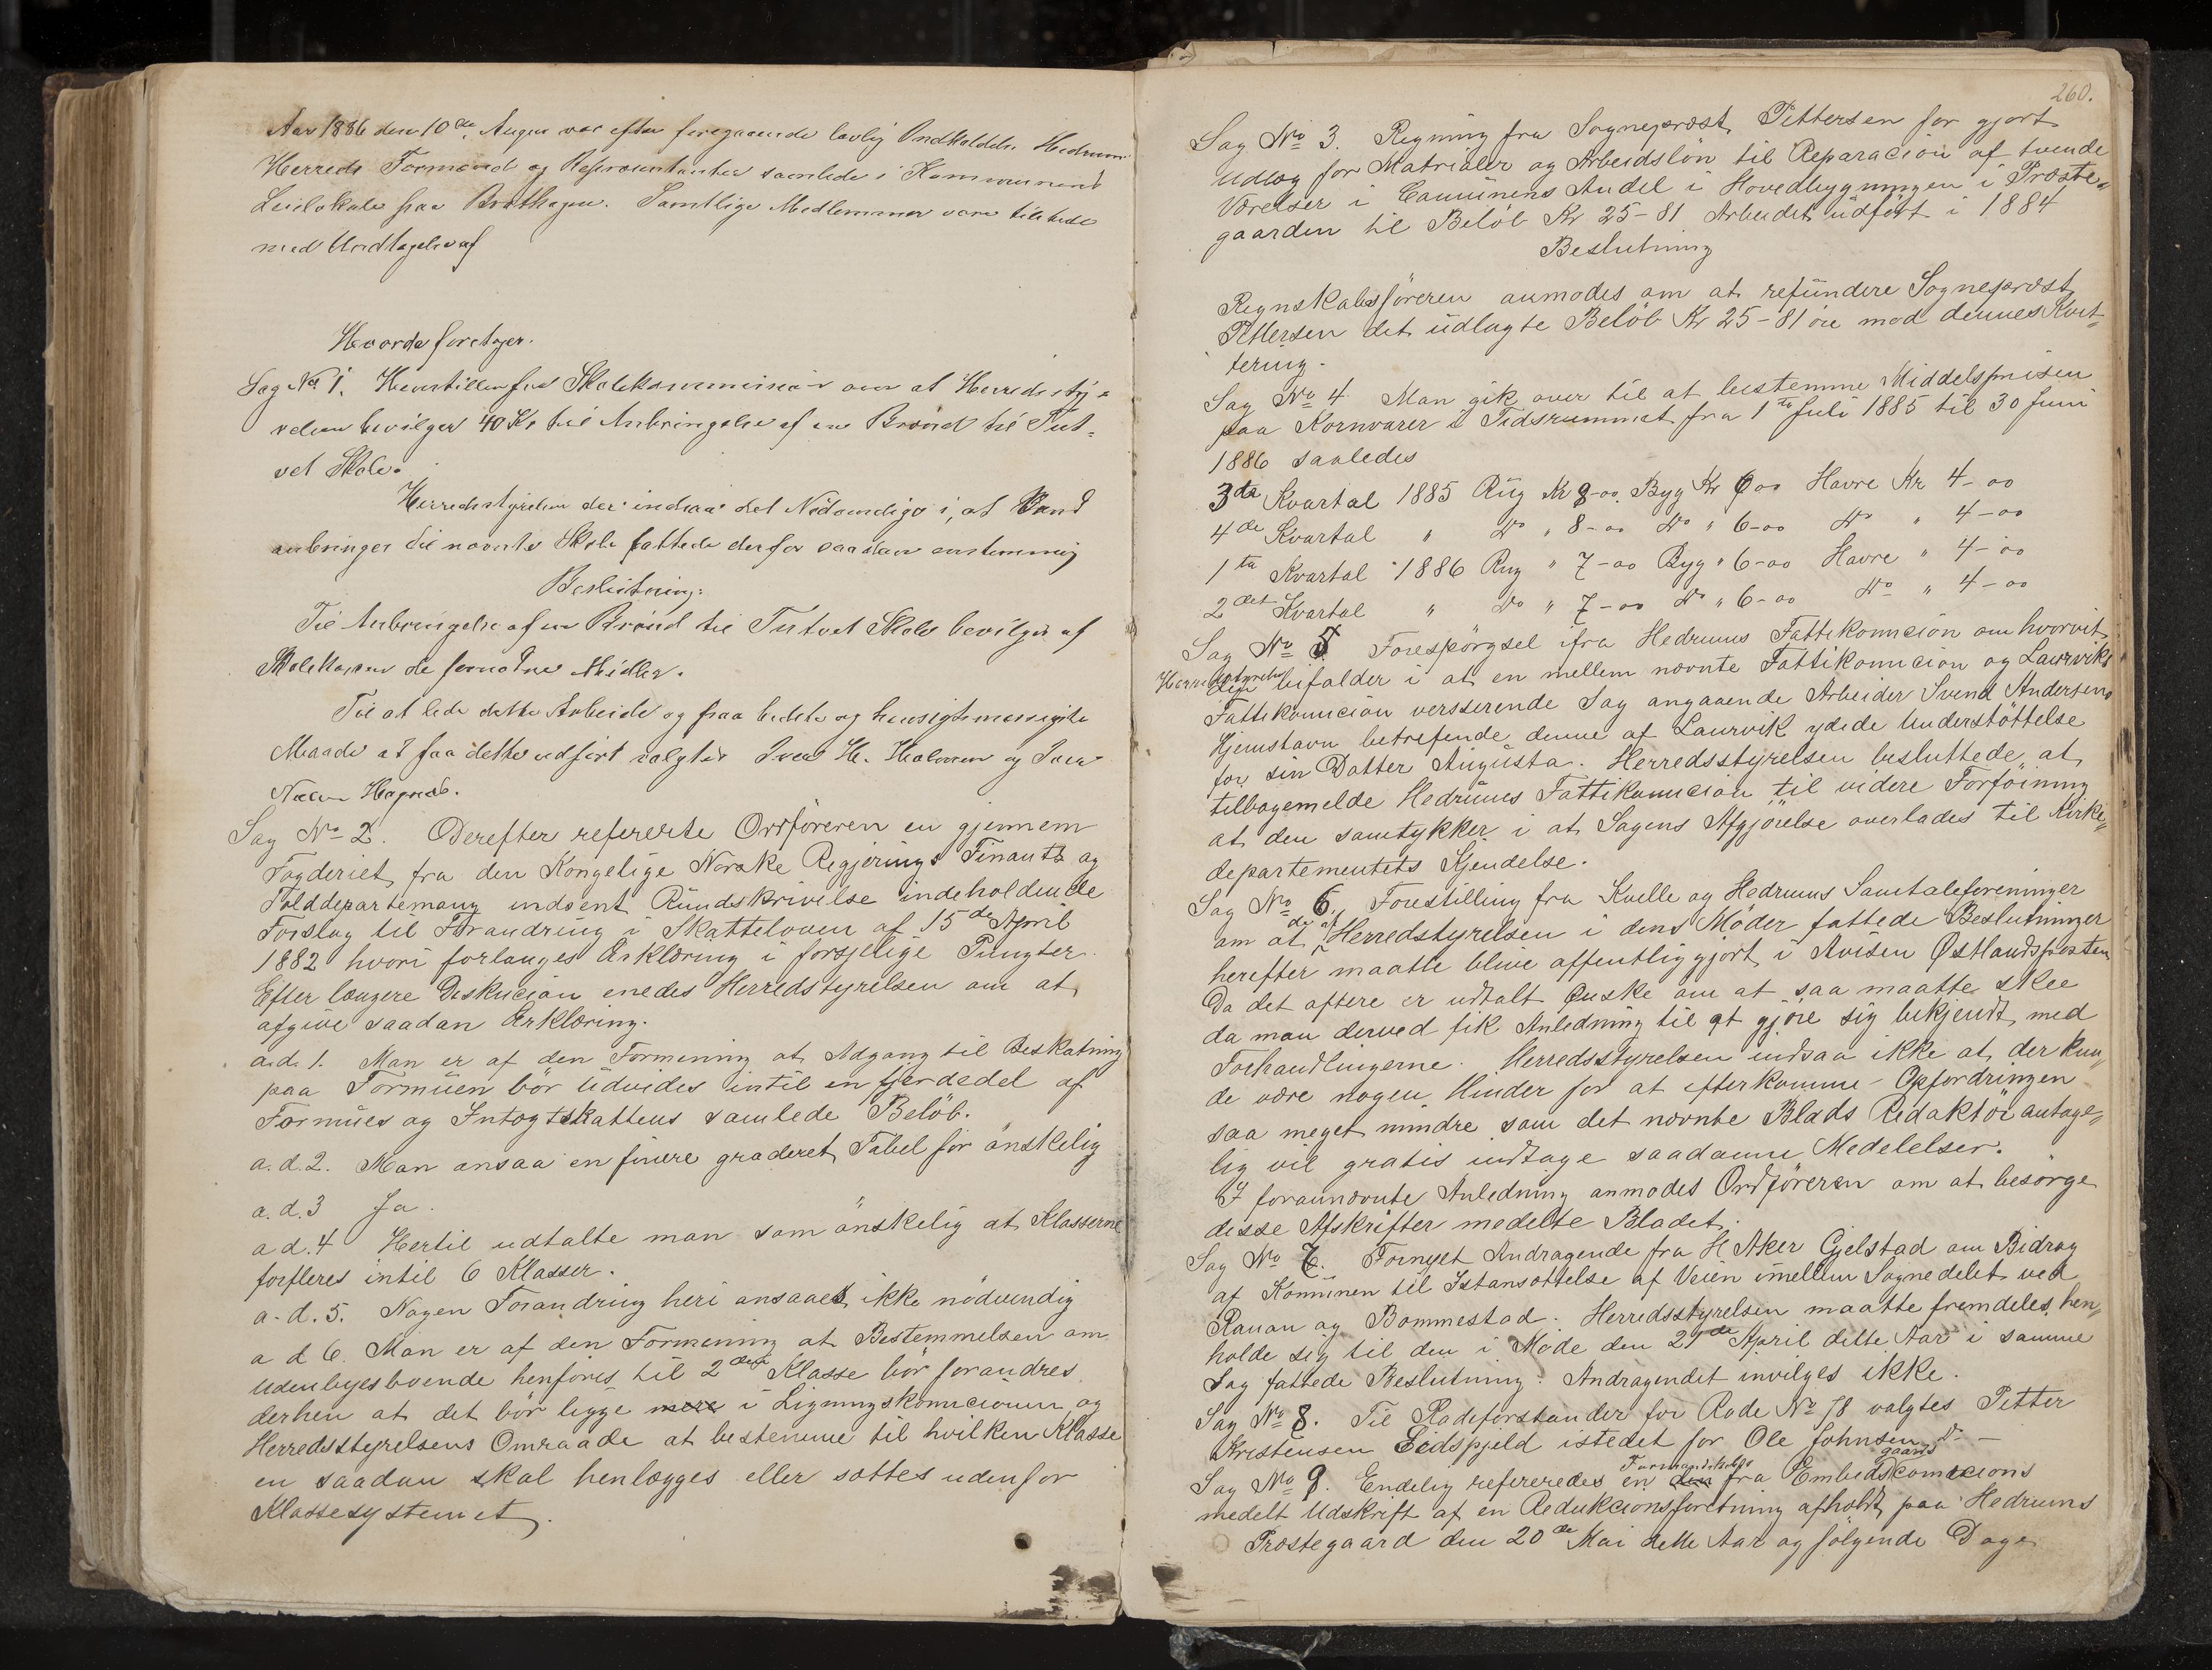 Aar 1886 den 10de August var efter foregaaende lovlig Indkaldelse Hedrum
Herreds Formænd og Repræsentanter samlede i Kommunens
Leielokale paa Brathagen. Samtlige Medlemmer vare tilstede
med Undtagelse af
Hvorda foretoges.
Sag No 1. Henstillen fra Skolekommission om at Herredssty=
relsen bevilger 40 Kr til Anbringelse af en Brønd til Tut=
vet Skole.
Herredsstyrelsen der indsaa det Nødvendige i, at Vand
anbringes til nævnte Skole fattede derfor saadan enstemmig
Beslutning:
Til Anbringelse af en Brønd til Tutvet Skole bevilges af
Skolekassen de fornødne Midler.
Til at lede dette Arbeide og paa bedste og hensigtsmæssigste
Maade at faa dette udført valgtes Iver H. Holmen og
Hagnæs.
Sag No 2. Derefter refererte Ordføreren en gjennem
Fogderiet fra den Kongelige Norske Regjerings Finants og
Tolddepartemang indsent Rundskrivelse indeholdende
Forslag til Forandring i Skatteloven af 15de April
1882 hvori forlanges Erklæring i forsjelige Pungter.
Efter længere Deskucion enedes Herredstyrelsen om at
afgive saadan Erklæring.
a.d. 1. Man er af den Formening at Adgang til Beskatning
paa Formuen bör udvides intil en fjerdedel af
Formues og Intægtskattens samlede Belöb.
a.d.2. Man ansaa en finere graderet Tabel for önskelig
a.d.3 Ja.
a d.4 Hertil udtalte man som önskelig at Klasserne
forfleres intil 6 Klasser.
a.d.5. Nogen Forandring heri ansaaes ikke nödvendig
a d 6. Man er af den Formening at Bestemmelsen om
Udenbyesboende henföres til 2den Klasse bör forandres
derhen at det bör ligge mere i Ligningskomicionen og
Herredsstyrelsens Omraade at bestemme til hvilken Klasse
en saadan skal henlægges eller sættes udenfor
Klassesystemet.
260.
Sag No 3. Regning fra Sogneprost Pettersen for gjort
Udlæg for Matrialer og Arbeidslön til Reparacion af tvende
Værelser i Comunens Andel i Hovedbygningen i Præste=
gaarden til Belöb Kr 25-81 Arbeidet udfört i 1884
Beslutning
Regnskabsföreren anmodes om at refundere Sogneprost
Pettersen det udlagte Belöb Kr 25-81 öre mod dennes Kvit=
tering.
Sag No 4 Man gik over til at bestemme Middelsprisen
paa Kornvarer i Tidsrummet fra 1ste Juli 1885 til 30 Juni
1886 saaledes
3de Kvartal 1885 Rug Kr 8-00. Byg Kr 6 00 Havre Kr 4-00
4de Kvartal " Do " 8-00 Do " 6-00 Do " 4-00
1ste Kvartal 1886 Rug " 7-00 Byg " 6-00 Havre " 4-00
2det Kvartal " Do " 7-00 Do " 6-00 Do " 4-00
Sag No 5 Forespörgsel fra Hedrums Fattikomicion om hvorvit
Herredsstyrelsen bifalder i at en mellem nævnte Fattikomicion og Laurviks
Fattikomicion versserende Sag angaaende Arbeider Svend Andersens
Hjemstavn betrefende denne af Laurvik ydede Understöttelse
for sin Datter Augusta. Herredsstyrelsen besluttede at
tilbagemelde Hedrums Fattikomicion til videre Forföining
at den samtykker i at Sagens Afgjörelse overlades til Kirke=
departementets Kjendelse.
Sag No 6 Forestilling fra Kvelle og Hedrums Samtaleforeninger
om at de af Herredstyrelsen i dens Möder fattede Beslutninger
herefter maatte blive offentliggjort i Avisen Østlandsposten
Da det oftere er udtalt Ønske om at saa maatte skee
da man derved fik Anledning til at gjöre sig bekjendt med
Forhandlingerne. Herredsstyrelsen indsaa ikke at der kun=
de være nogen Hinder for at efterkomme Opfordringen
saa meget mindre som det nævnte Blads Redaktör antage=
lig vil gratis indtage saadanne Medelelser.
I forannævnte Anledning anmodes Ordföreren om at besörge
disse Afskrifter medelte Bladet.
Sag No 7. Fornyet Andragende fra H Aker Gjelstad om Bidrag
af Komunen til Istansættelse af Veien imellem Sognedelet ved
Rauan og Bommestad. Herredsstyrelsen maatte fremdeles hen=
holde sig til den i Möde den 21de April dette Aar i samme
Sag fattede Beslutning: Andragendet invilges ikke.
Sag No 8. Til Rodeforstander for Rode No 18 valgtes Petter
Kristensen Eidspjeld istedet for Ole Johnsen Do —
Sag No 9. Endelig refereredes en den Formandskabs fra Embedsgaards Comicions
medelt Udskrift af en Redukcionsforetning afholdt paa Hedrums
Præstegaard den 20de Mai dette Aar og fölgende Dage